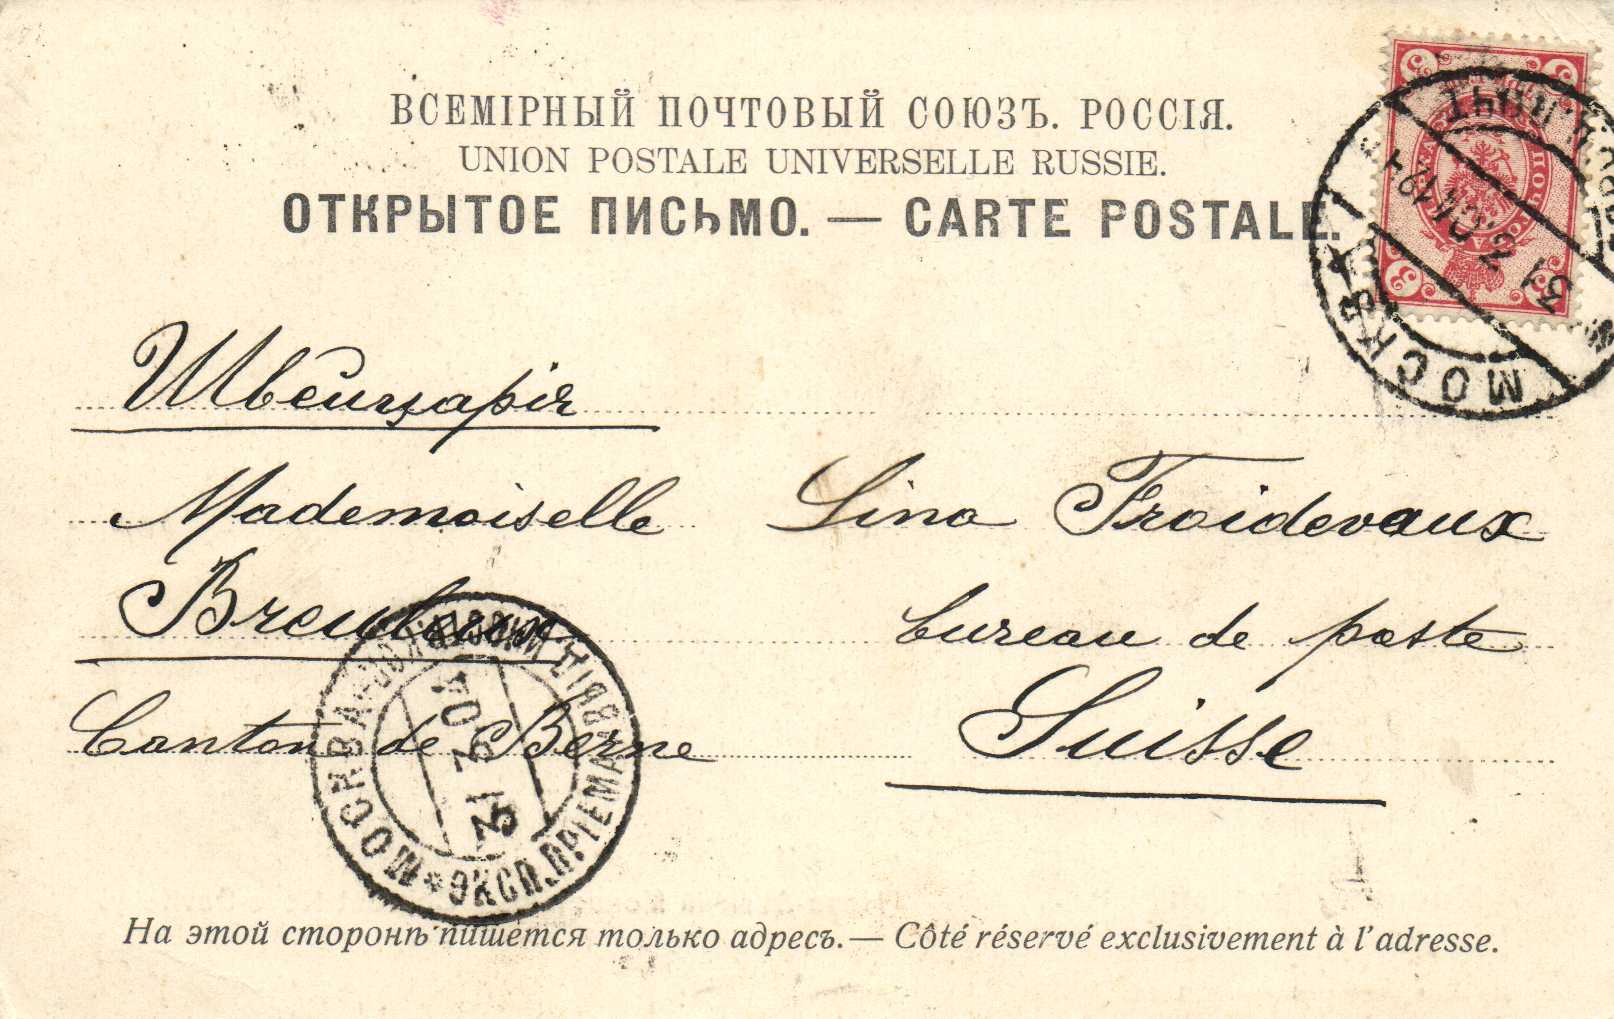 ВСЕМІРНЫЙ ПОЧТОВЫЙ СОЮЗЪ. РОССІЯ.
UNION POSTALE UNIVERSELLE RUSSIE.
ОТКРЫТОЕ ПИСЬМО. — CARTE POSTALE.
3 3
МОСКВА
31 3.04 12
3 3
Швейцарія
Mademoiselle Lina Froidevaux
bureau de poste
Canton de Berne Suisse
МОСКВА ЭКСП. ПРІЕМА
3 04
На этой сторонѣ пишется только адресъ. — Côté réservé exclusivement à l'adresse.